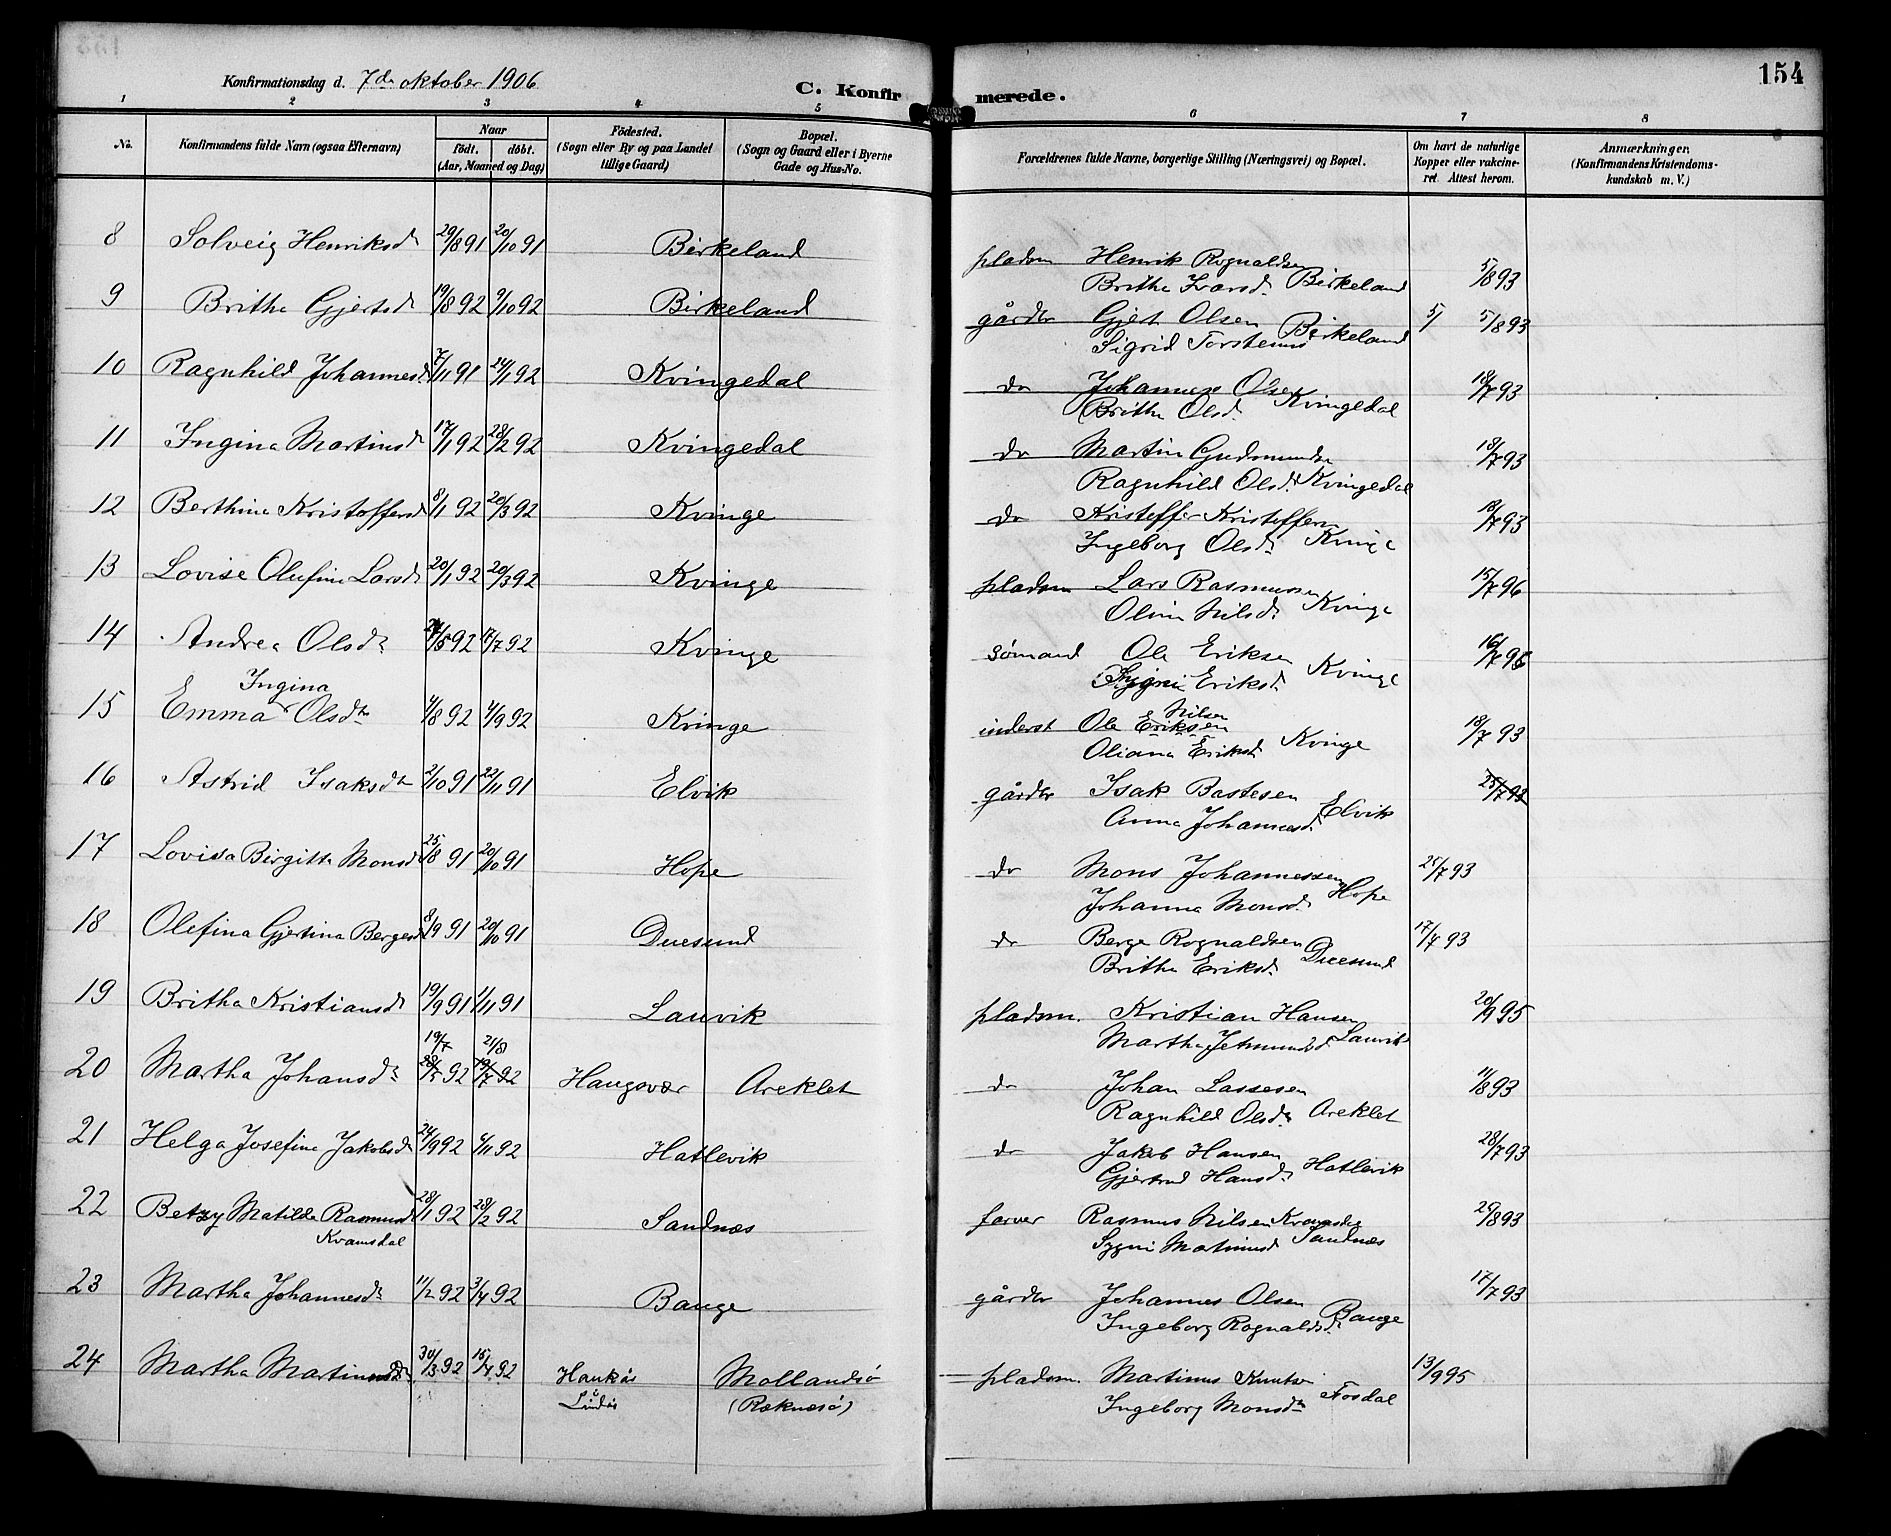 154
Konfirmationsdag d. 7de oktober 1906
C. Konfirmerede.
1 2 3 4 5 6 7 8
No.
Konfirmandens fulde Navn (ogsaa Efternavn)
Naar
födt. döbt.
(Aar, Maaned og Dag)
Födested.
(Sogn eller By og paa Landet
tillige Gaard)
Bopæl.
(Sogn og Gaard eller i Byerne
Gade og Hus-No.
Forældrenes fulde Navne, borgerlige Stilling (Næringsvei) og Bopæl.
Om havt de naturlige
Kopper eller vakcine-
ret. Attest herom.
Anmærkninger.
(Konfirmandens Kristendoms-
kundskab m. V.)
8 Solveig Henriksdr 29/8 91 20/10 91 Birkeland pladsm Henrik Rognaldsen 5/8 93
Brithe Ivarsdr Birkeland
9 Brithe Gjertsdr 19/8 92 9/10 92 Birkeland gårdbr Gjert Olsen Birkeland 5/ 5/8 93
Sigrid
10 Ragnhild Johannesdr 7/11 91 Kvingedal do Johannes Olsen 18/7 93
Brithe Olsdr Kvingedal
11 Ingina Martinsdr 17/1 92 28/2 92 Kvingedal do Martin Gudmundsen 18/7 93
Ragnhild Olsdr Kvingedal
12 Berthine Kristoffersdr 8/1 92 20/3 92 Kvinge do Kristoffer Kristoffersen 18/7 93
Ingeborg Olsdr Kvinge
13 Lovise Olufine Larsdr 20/1 92 20/3 92 Kvinge pladsm Lars Rasmussen 15/7 96
Oline Nilsdr Kvinge
14 Andrea Olsdr 92 17/7 92 Kvinge sømand Ole Eriksen
Eriksdr Kvinge
Ingina
15 Emma Olsdtr 4/8 92 4/9 92 Kvinge inderst Ole Eriksen Nilsen 18/7 93
Oliana Eriksdr Kvinge
16 Astrid Isaksdtr 2/10 91 22/11 91 Elvik gårdbr Isak Bastesen 25/7 93
Anna Johannesdr Elvik
17 Lovisa Birgitte Monsdr 25/8 91 20/10 91 Hope do Mons Johannessen 25/7 93
Johanna Monsdr Hope
18 Olefina Gjertina Bergesdr 8/9 91 20/10 91 Duesund do Berge Rognaldsen 17/7 93
Brithe Eriksdr Duesund
19 Britha Kristiansdr 19/9 91 1/11 91 Lauvik pladsm. Kristian Hansen 95
Martha Jetmundsd Lauvik
19/7 21/8
20 Martha Johansdr 92 19/7 92 Haugsvær Areklet do Johan Lassesen 11/8 93
Ragnhild Olsdr Areklet
21 Helga Josefine Jakobsdr 24/9 92 6/11 92 Hatlevik do Jakob Hansen 28/7 93
Gjertrud Hansdr Hatlevik
22 Betzy Matilde Rasmusdr 28/1 92 28/2 92 Sandnæs farver Rasmus Nilsen Kramsdal 29/8 93
Kvamsdal Sygni Martinusd Sandnæs
23 Martha Johannesdr 11/2 92 3/4 92 Bauge gårdbr Johannes Olsen 17/7 93
Ingeborg Rognaldsdr Bauge
24 Martha Martinusdr 30/3 92 92 Haukås Mollandsø pladsm. Martinus Knutsen 13/9 95
(Ræknesø) Ingeborg Monsdtr Fosdal